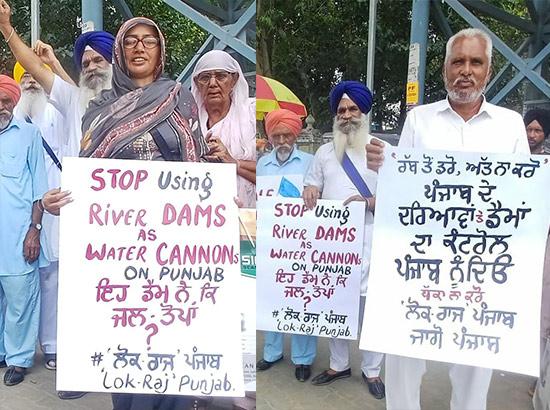 STOP Using
RIVER DAMS
AS
WATER CANNONs
ON PUNJAB
ਇਹ ਡੈਮ ਨੇ ਕਿ
ਜਲ-ਤੋਪਾਂ?
# 'ਲੋਕ-ਰਾਜ' ਪੰਜਾਬ
'Lok-Raj' Punjab.
STOP Using
RIVER DAMS
AS
WATER CANNONs
ON PUNJAB
ਇਹ ਡੈਮ ਨੇ ਕਿ
ਜਲ-ਤੋਪਾਂ?
# 'ਲੋਕ-ਰਾਜ' ਪੰਜਾਬ
'Lok-Raj' Punjab.
"ਰੱਬ ਤੋਂ ਡਰੋ, ਅੱਤ ਨਾ ਕਰੋ"
ਪੰਜਾਬ ਦੇ
ਦਰਿਆਵਾਂ ਤੇ ਡੈਮਾਂ
ਦਾ ਕੰਟਰੋਲ
ਪੰਜਾਬ ਨੂੰ ਦਿਓ
ਧੱਕਾ ਨਾ ਕਰੋ
'ਲੋਕ-ਰਾਜ' ਪੰਜਾਬ
ਜਾਗੋ ਪੰਜਾਬ